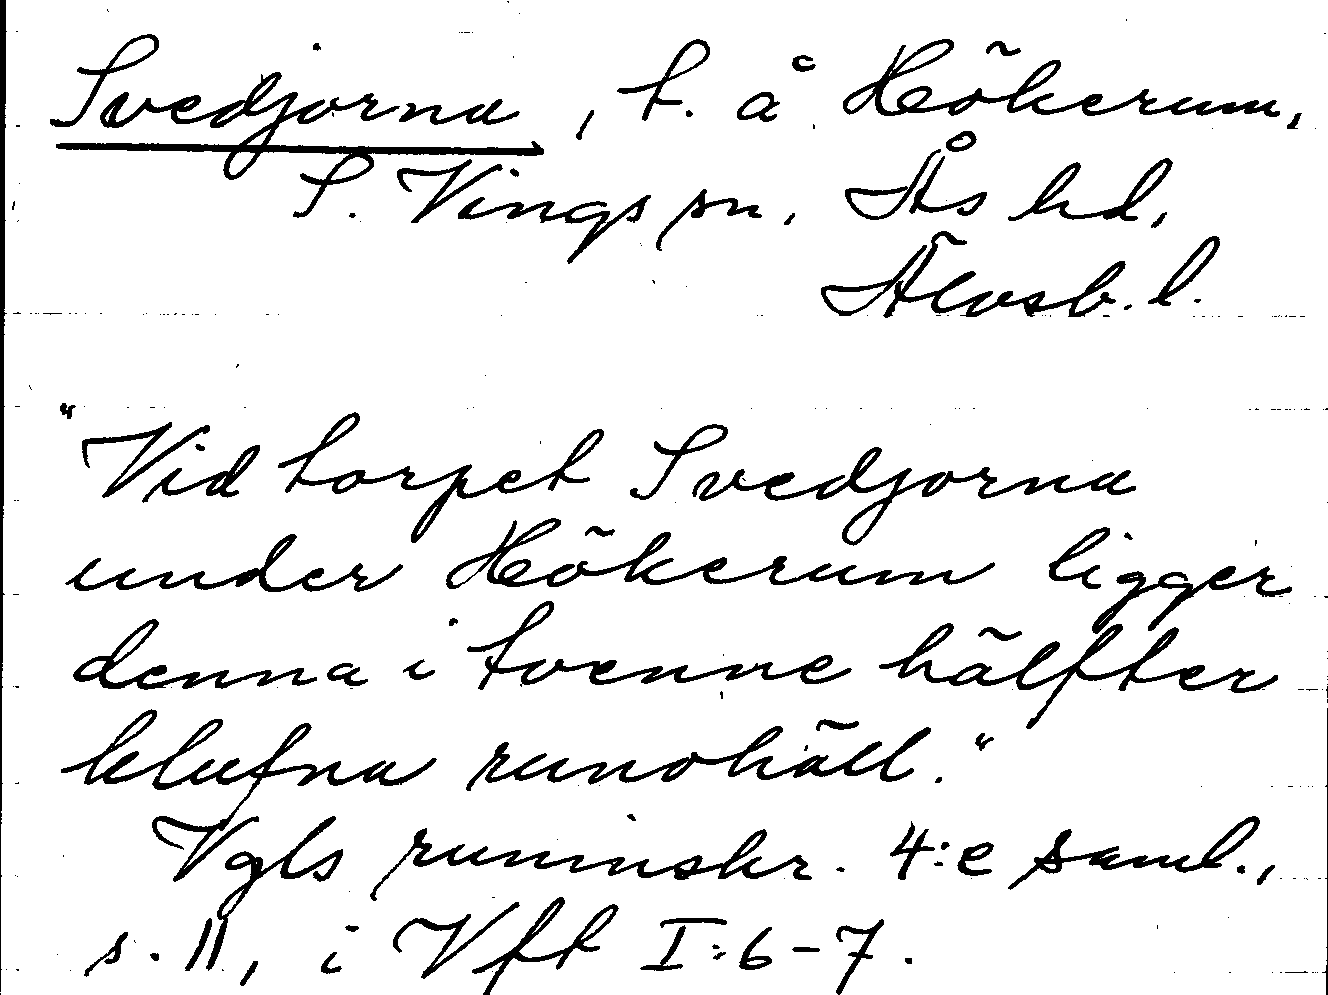 Svedjorna, t. å Hökerum,
S. Vings sn, Ås hd,
Älvsb. l.
"Vid torpet Svedjorna
under Hökerum ligger
denna i tvenne hälfter
klufna runohäll."
Vgls runinskr. 4:e saml.,
s. 11, i Vft I:6-7.